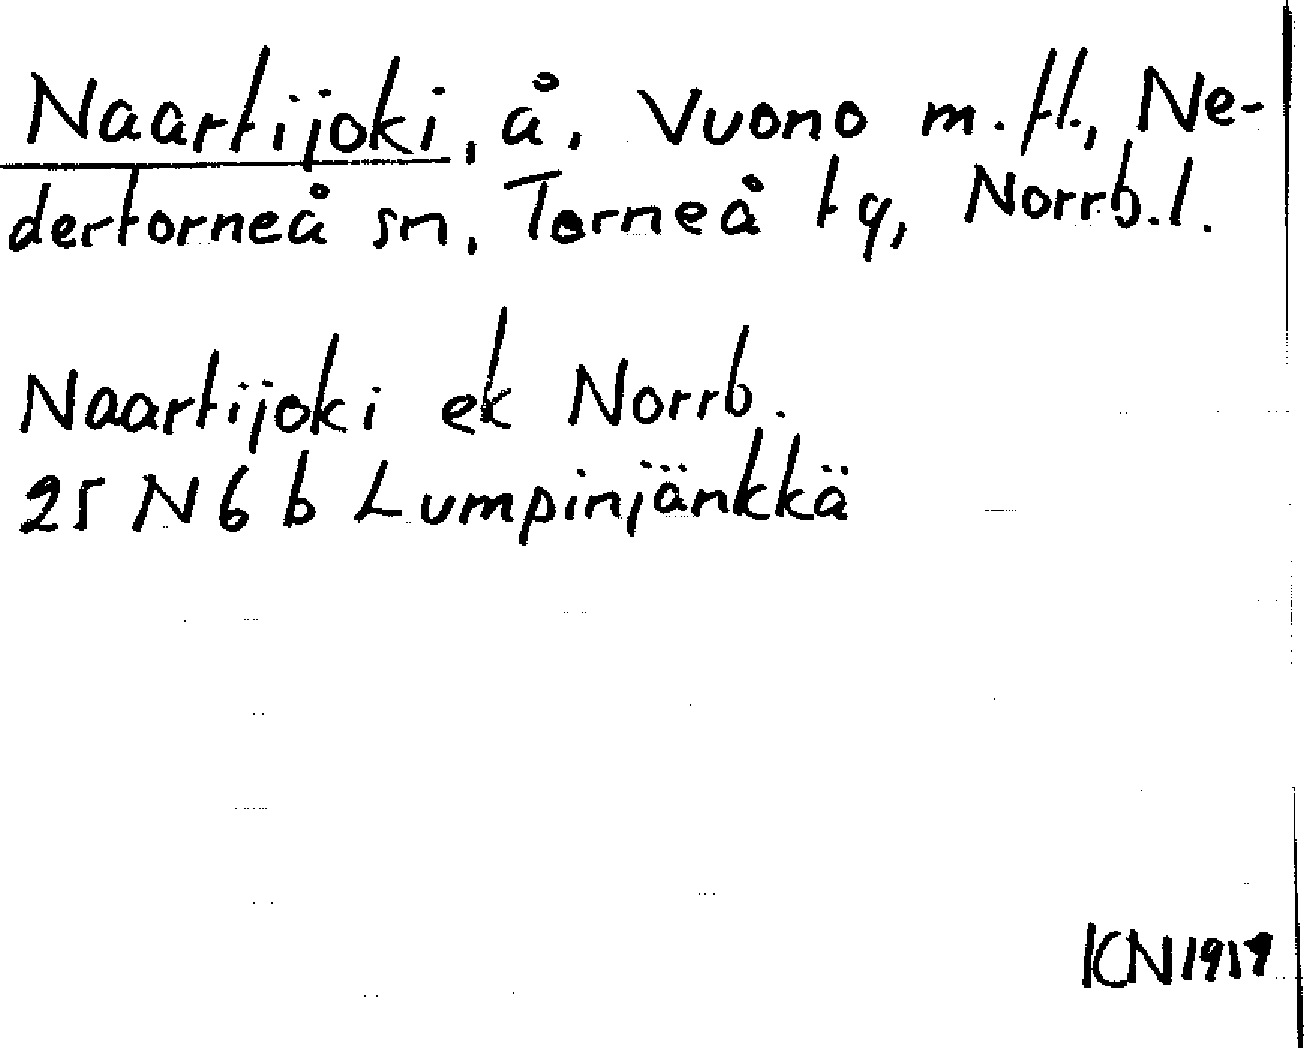 Naartijoki, å, Vuono m.fl., Ne-
dertorneå sn, Torneå tg, Norrb.l.
Naartijoki ek Norrb.
25 N 6 b Lumpinjänkkä
KN 1919